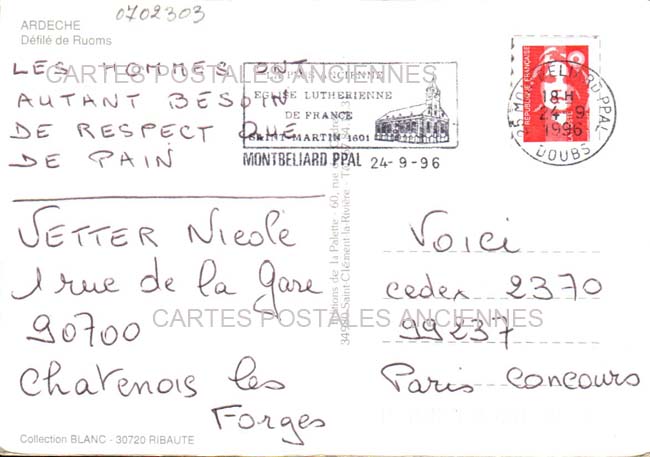 0702303
ARDECHE
Défilé de Ruoms
LES HOMMES ONT
AUTANT BESOIN
DE RESPECT QUE
DE PAIN
CARTES POSTALES ANCIENNES
PLUS ANCIENNE
EGLISE LUTHERIENNE
DE FRANCE
SAINT-MARTIN 1601
MONTBELIARD PPAL 24-9-96
25 MONTBELIARD-PPAL
18H
24-9
1996
DOUBS
REPUBLIQUE FRANÇAISE
VETTER Nicole
1 rue de la Gare
90700
Chatenois les
Forges
Editions de la Palette - 60, rue
34980 Saint-Clément-la-Rivière - Tél.
Voici
cedex 2370
99237
Paris concours
CARTES POSTALES ANCIENNES
Collection BLANC - 30720 RIBAUTE